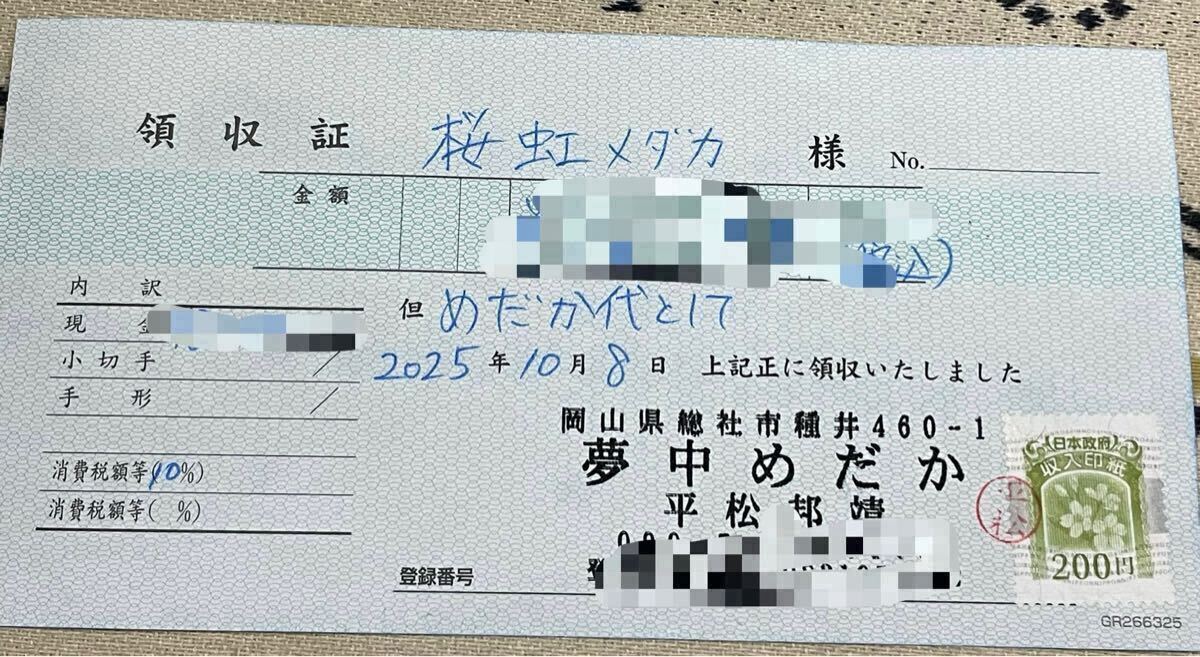 領収証 桜虹メダカ 様 No.
金額
税込)
内訳
現金
小切手 /
手形 /
消費税額等(10%)
消費税額等( %)
但 めだか代として
2025年10月8日 上記正に領収いたしました
岡山県総社市種井460-1
夢中めだか
平松邦靖
登録番号
平松
日本政府
収入印紙
200円
GR266325